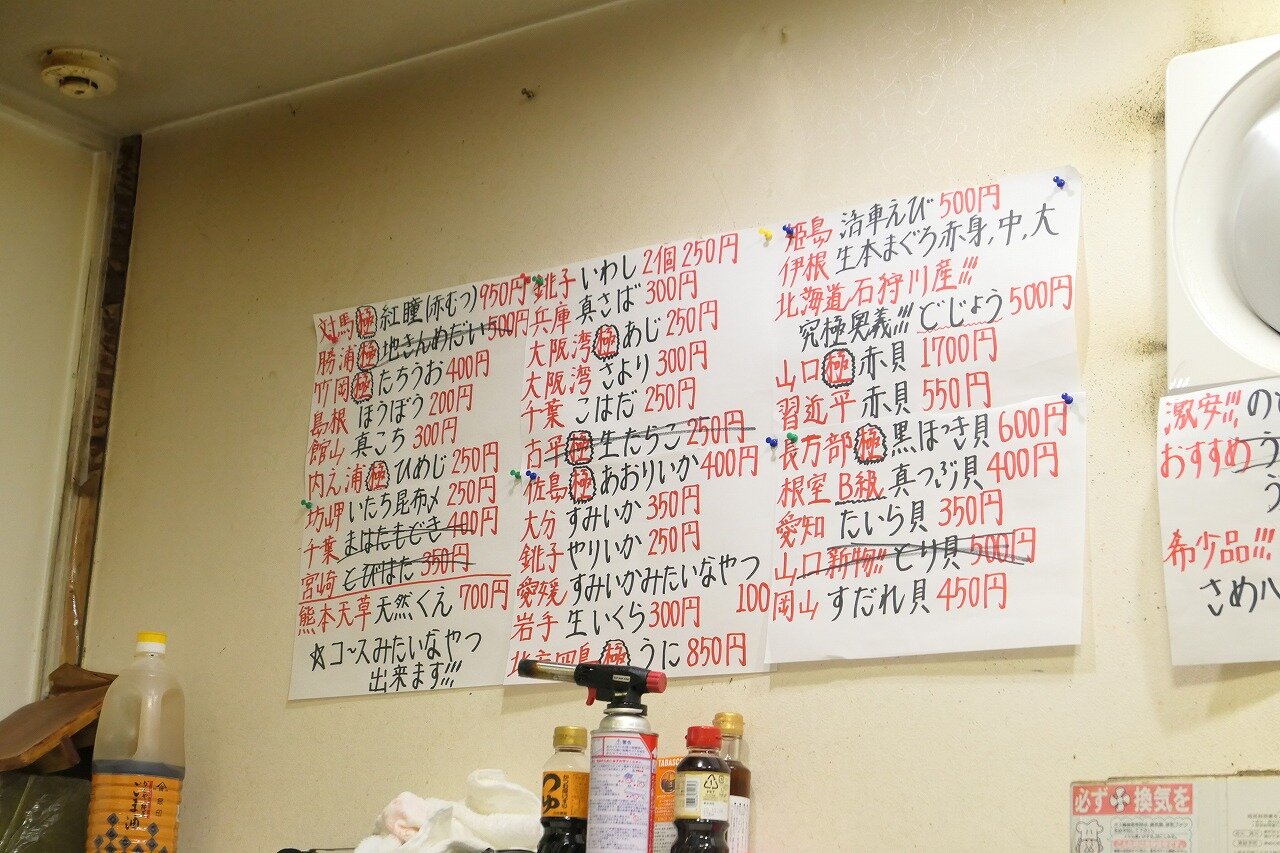 対馬 極 紅瞳(赤むつ) 950円
勝浦 極 地きんめだい 500円
竹岡 極 たちうお 400円
島根 ほうぼう 200円
館山 真こち 300円
内え浦 極 ひめじ 250円
坊岬 いたち昆布〆 250円
千葉 まはたもどき 400円
宮崎 とびはた 350円
熊本天草 天然くえ 700円
☆コースみたいなやつ
出来ます!!!
銚子 いわし 2個 250円
兵庫 真さば 300円
大阪湾 極 あじ 250円
大阪湾 さより 300円
千葉 こはだ 250円
古平 極 生たらこ 250円
佐島 極 あおりいか 400円
大分 すみいか 350円
銚子 やりいか 250円
愛媛 すみいかみたいなやつ
100
岩手 生いくら 300円
北方四島 極 うに 850円
姫島 活車えび 500円
伊根 生本まぐろ赤身,中,大
北海道石狩川産!!!
究極奥義!!! どじょう 500円
山口 極 赤貝 1700円
習近平 赤貝 550円
長万部 極 黒ほっき貝 600円
根室 B級 真つぶ貝 400円
愛知 たいら貝 350円
山口 新物!!! とり貝 500円
岡山 すだれ貝 450円
激安!!! の
おすすめ う
う
希少品!!!
さめハ
ごま油
つゆ
TABASCO
必ず 換気を